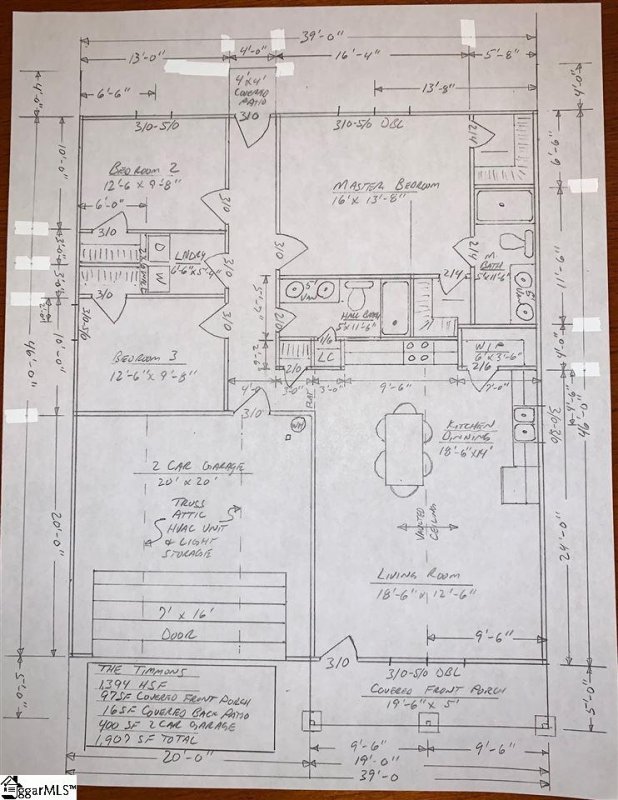 39'-0"
13'-0"
4'-0"
16'-4"
5'-8"
6'-6"
4'x4'
COVERED
PATIO
13'-8"
4'-0"
4'-0"
3/0-5/0
3/0
3/0-5/0 DBL
2/4
BEDROOM 2
12'-6 x 9'-8"
6'-0"
MASTER BEDROOM
16' x 13'-8"
10'-0"
6'-6"
3/0
3/0
3/0
LNDRY
6'-6" x 5'-4"
W
3/0
3/0
2/4
M.
BATH
5' x 11'-6"
11'-6"
2/4
5'
VAN
HALL BATH
5' x 11'-6"
BEDROOM 3
12'-6" x 9'-8"
3/0
10'-0"
46'-0"
LC
2/0
W/P
6' x 3'-6"
2/6
4'-0"
9'-6"
3/0
WH
KITCHEN
DINING
18'-6" x 14'
3/0-3/0
46'-0"
2 CAR GARAGE
20' x 20'
TRUSS
ATTIC
HVAC UNIT
& LIGHT
STORAGE
VAULTED
CEILING
20'-0"
24'-0"
LIVING ROOM
18'-6" x 12'-6"
7' x 16'
DOOR
9'-6"
3/0
3/0-5/0 DBL
COVERED FRONT PORCH
19'-6" x 5'
THE TIMMONS
1,394 HSF
97SF COVERED FRONT PORCH
16SF COVERED BACK PATIO
400 SF 2 CAR GARAGE
1,907 SF TOTAL
5'-0"
5'-0"
9'-6"
9'-6"
20'-0"
19'-0"
39'-0
ggarMLS™